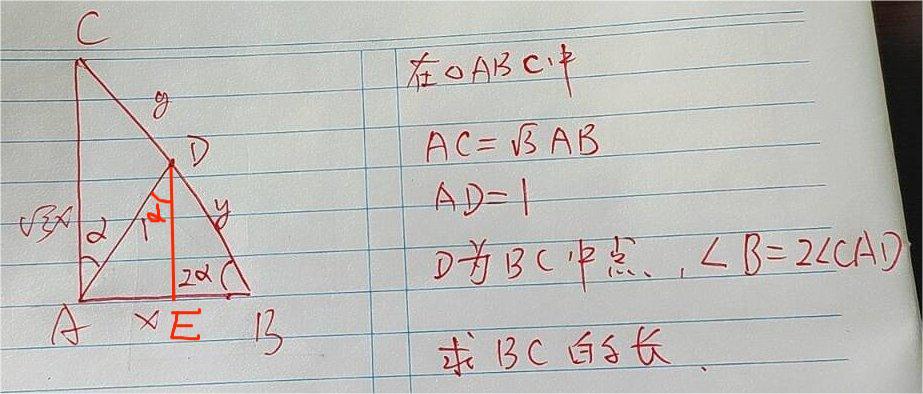 C
y
D
√3x
α
1
α
y
2α
A
x
E
B
在△ABC中
AC=√3AB
AD=1
D为BC中点,∠B=2∠CAD
求BC的长.